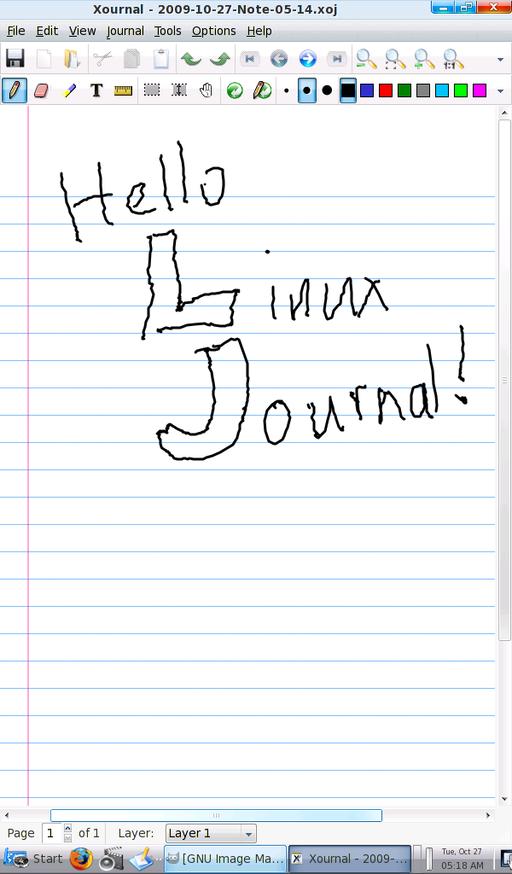 Xournal - 2009-10-27-Note-05-14.xoj
File Edit View Journal Tools Options Help
T
Hello
Linux
Journal!
Page 1 of 1 Layer: Layer 1
Start [GNU Image Ma... Xournal - 2009-... Tue, Oct 27
05:18 AM